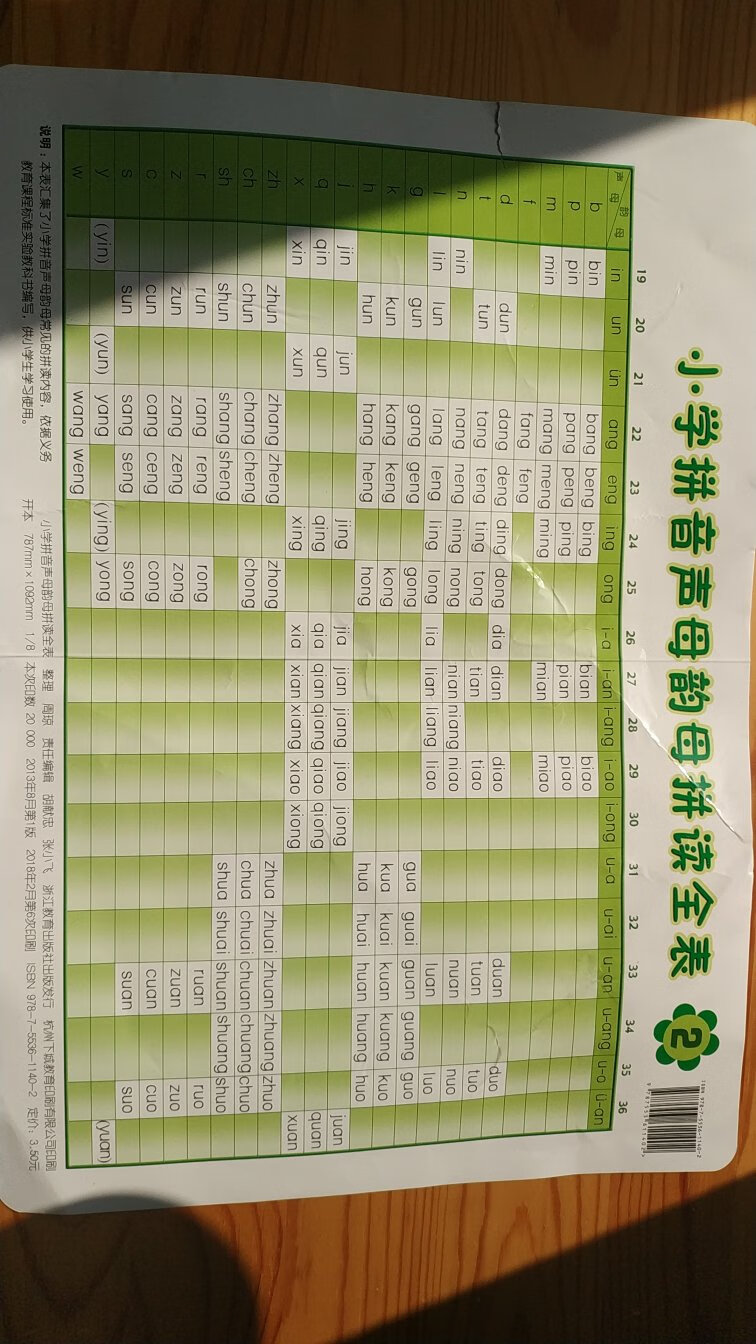 小学拼音声母韵母拼读全表 2
ISBN 978-7-5536-1140-2
9 787553 611402
19 20 21 22 23 24 25 26 27 28 29 30 31 32 33 34 35 36
声母 韵母 in un ün ang eng ing ong i-a i-an i-ang i-ao i-ong u-a u-ai u-an u-ang u-o ü-an
b bin bang beng bing bian biao
p pin pang peng ping pian piao
m min mang meng ming mian miao
f fang feng
d dun dang deng ding dong dia dian diao duan duo
t tun tang teng ting tong tian tiao tuan tuo
n nin nang neng ning nong nian niang niao nuan nuo
l lin lun lang leng ling long lia lian liang liao luan luo
g gun gang geng gong gua guai guan guang guo
k kun kang keng kong kua kuai kuan kuang kuo
h hun hang heng hong hua huai huan huang huo
j jin jun jing jia jian jiang jiao jiong juan
q qin qun qing qia qian qiang qiao qiong quan
x xin xun xing xia xian xiang xiao xiong xuan
zh zhun zhang zheng zhong zhua zhuai zhuan zhuang zhuo
ch chun chang cheng chong chua chuai chuan chuang chuo
sh shun shang sheng shua shuai shuan shuang shuo
r run rang reng rong ruan ruo
z zun zang zeng zong zuan zuo
c cun cang ceng cong cuan cuo
s sun sang seng song suan suo
y (yin) (yun) yang (ying) yong (yuan)
w wang weng
说明：本表汇集了小学拼音声母韵母常见的拼读内容，依据义务
教育课程标准实验教科书编写，供小学生学习使用。
小学拼音声母韵母拼读全表 整理 周琼 责任编辑 胡献忠 张小飞 浙江教育出版社出版发行 杭州下城教育印刷有限公司印刷
开本 787mm×1092mm 1/8 本次印数 20 000 2013年8月第1版 2018年2月第6次印刷 ISBN 978-7-5536-1140-2 定价：3.50元